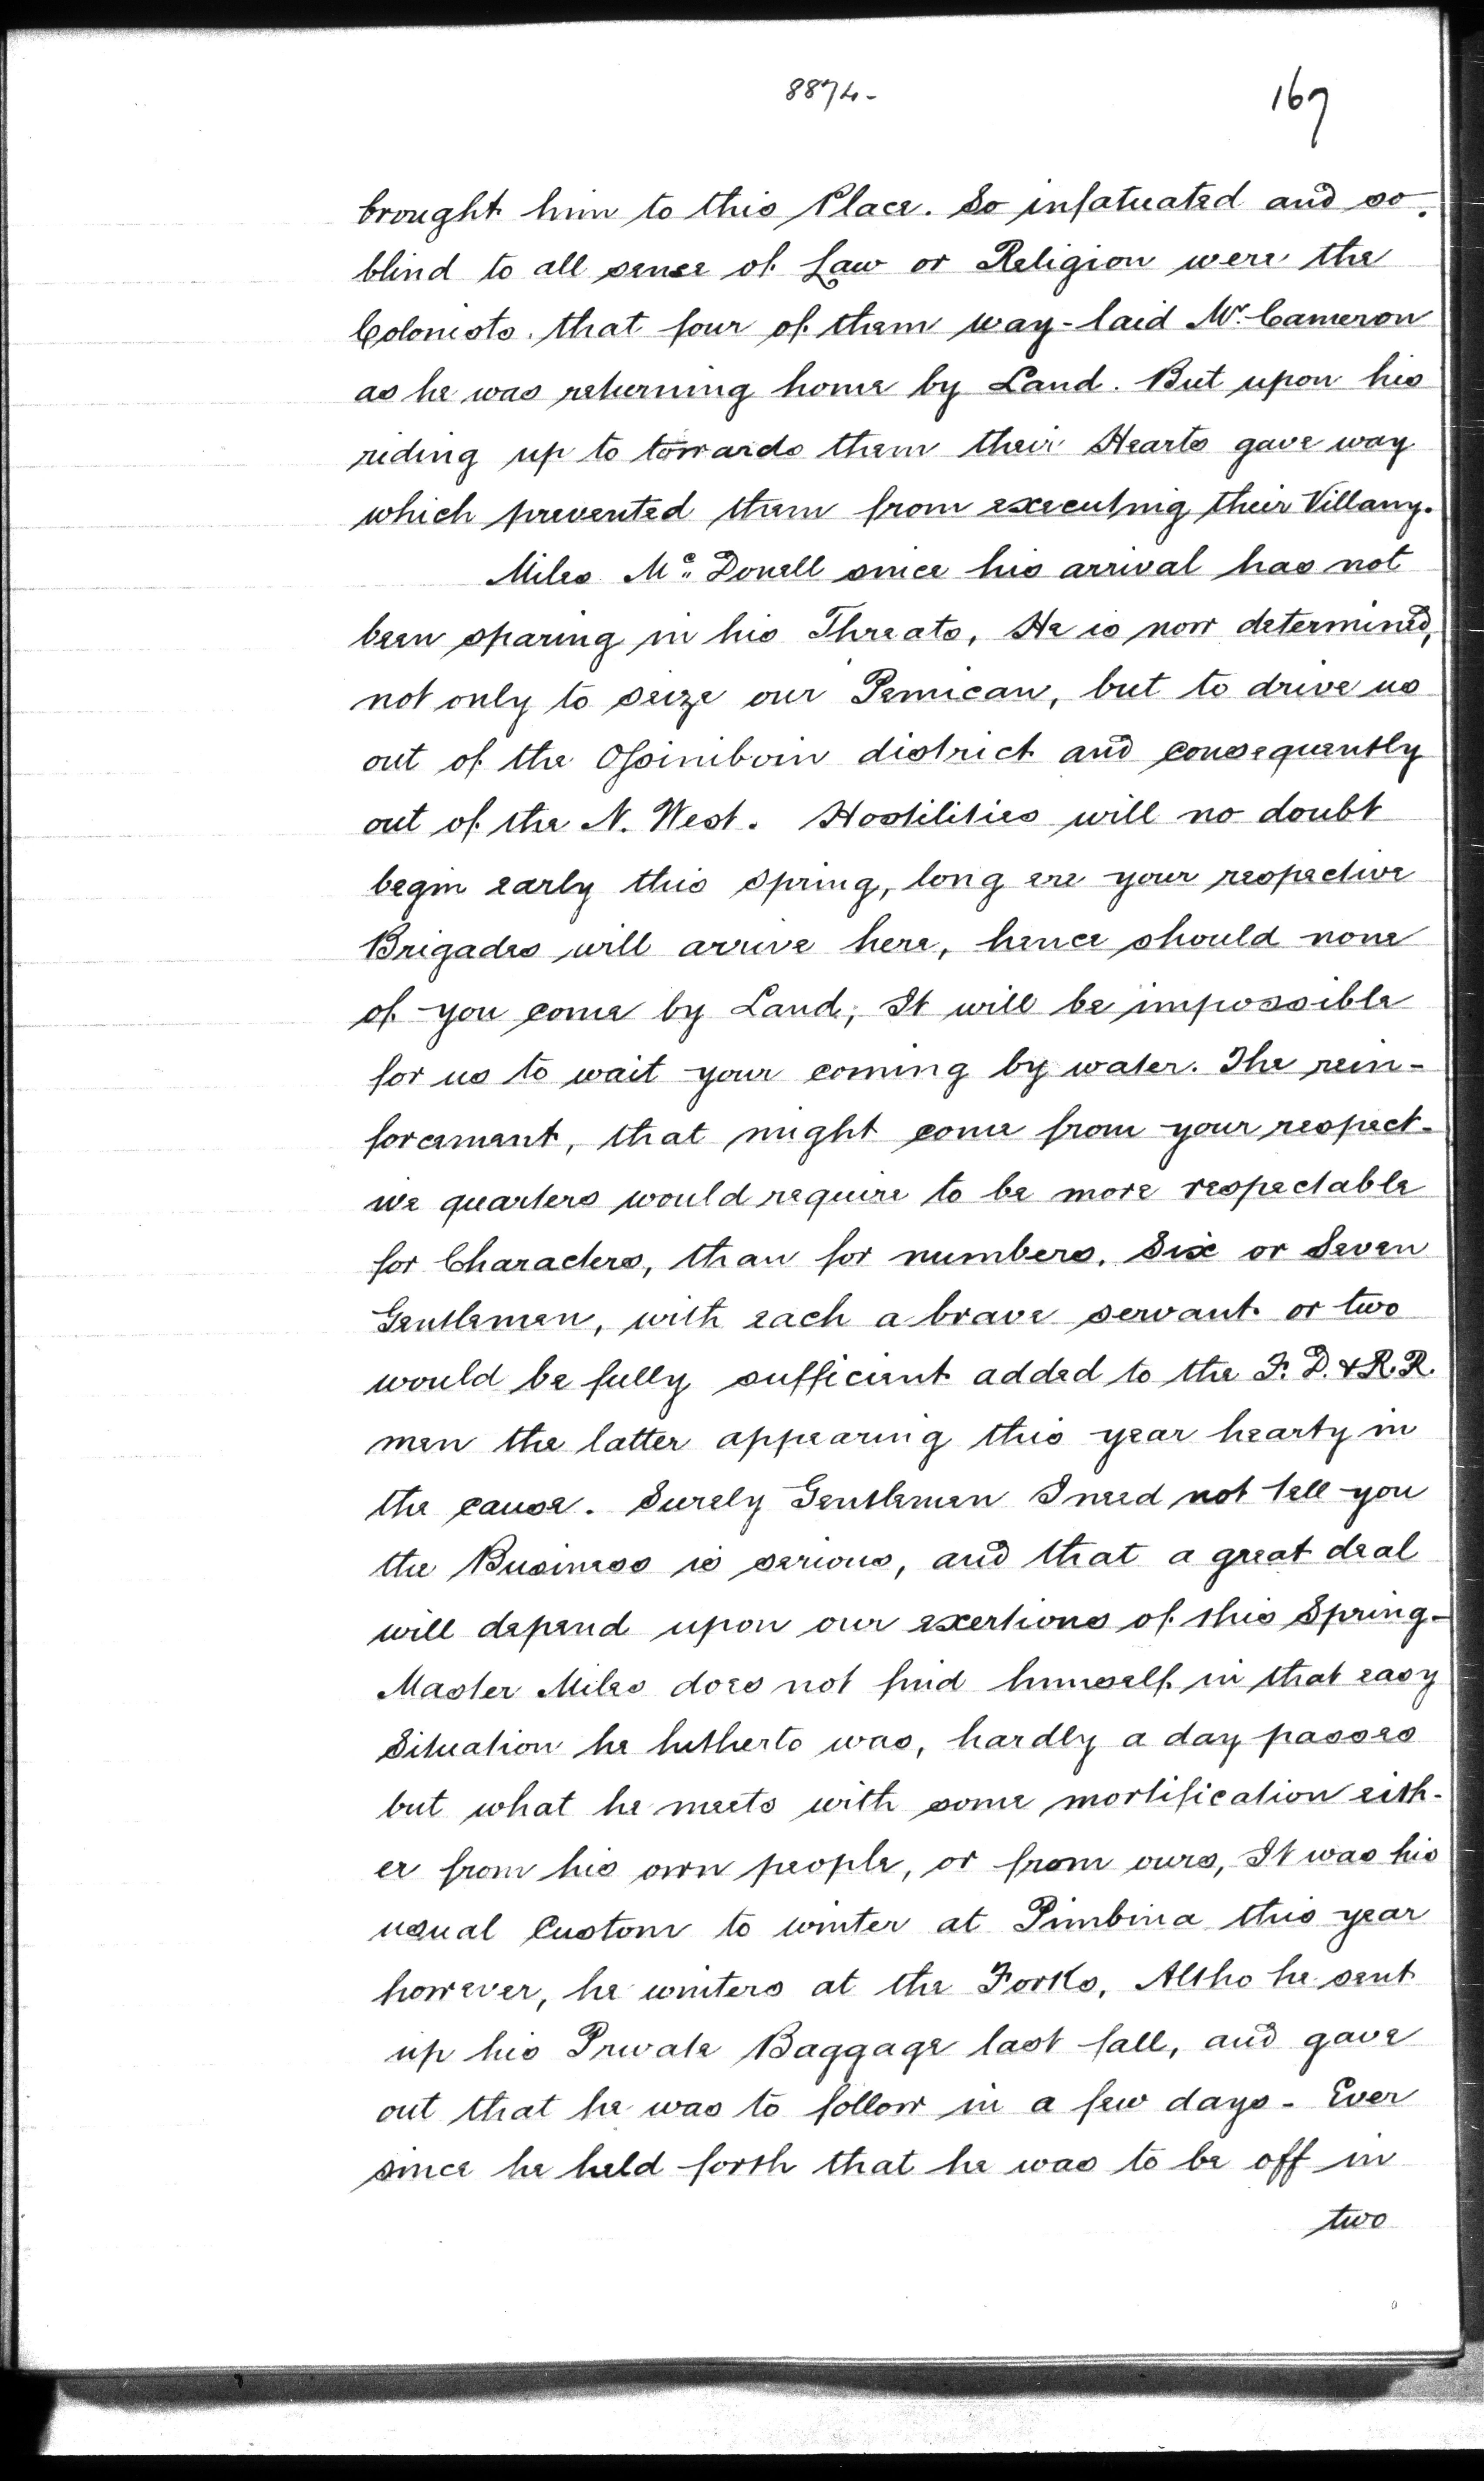 8874-
167
brought him to this Place. So infatuated and so.
blind to all sense of Law or Religion were the
Colonists. that four of them way-laid Mr. Cameron
as he was returning home by Land. But upon his
riding up to towards them their Hearts gave way
which prevented them from executing their Villany.
Miles Mc. Donell since his arrival has not
been sparing in his Threats, He is now determined,
not only to seize our Pemican, but to drive us
out of the Ossiniboin district and consequently
out of the N. West. Hostilities will no doubt
begin early this spring, long ere your respective
Brigades will arrive here, hence should none
of you come by Land; It will be impossible
for us to wait your coming by water. The rein-
forcement, that might come from your respect-
ive quarters would require to be more respectable
for Characters, than for numbers. Six or Seven
Gentlemen, with each a brave servant or two
would be fully sufficient added to the F. D. & R. R.
men the latter appearing this year hearty in
the cause. Surely Gentlemen I need not tell you
the Business is serious, and that a great deal
will depend upon our exertions of this Spring-
Master Miles does not find himself in that easy
Situation he hitherto was, hardly a day passes
but what he meets with some mortification eith-
er from his own people, or from ours, It was his
usual Custom to winter at Pimbina this year
however, he winters at the Forks, Altho he sent
up his Private Baggage last fall, and gave
out that he was to follow in a few days - Ever
since he held forth that he was to be off in
two